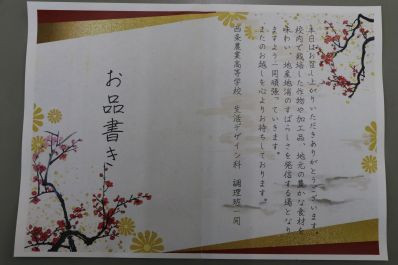 本日はお召し上がりいただきありがとうございます。
校内で栽培した作物や加工品、地元の豊かな食材を
味わい、地産地消のすばらしさを発信する場となり
ますよう一同頑張っていきます。
またのお越しを心よりお待ちしております。
西条農業高等学校 生活デザイン科 調理班一同
お品書き